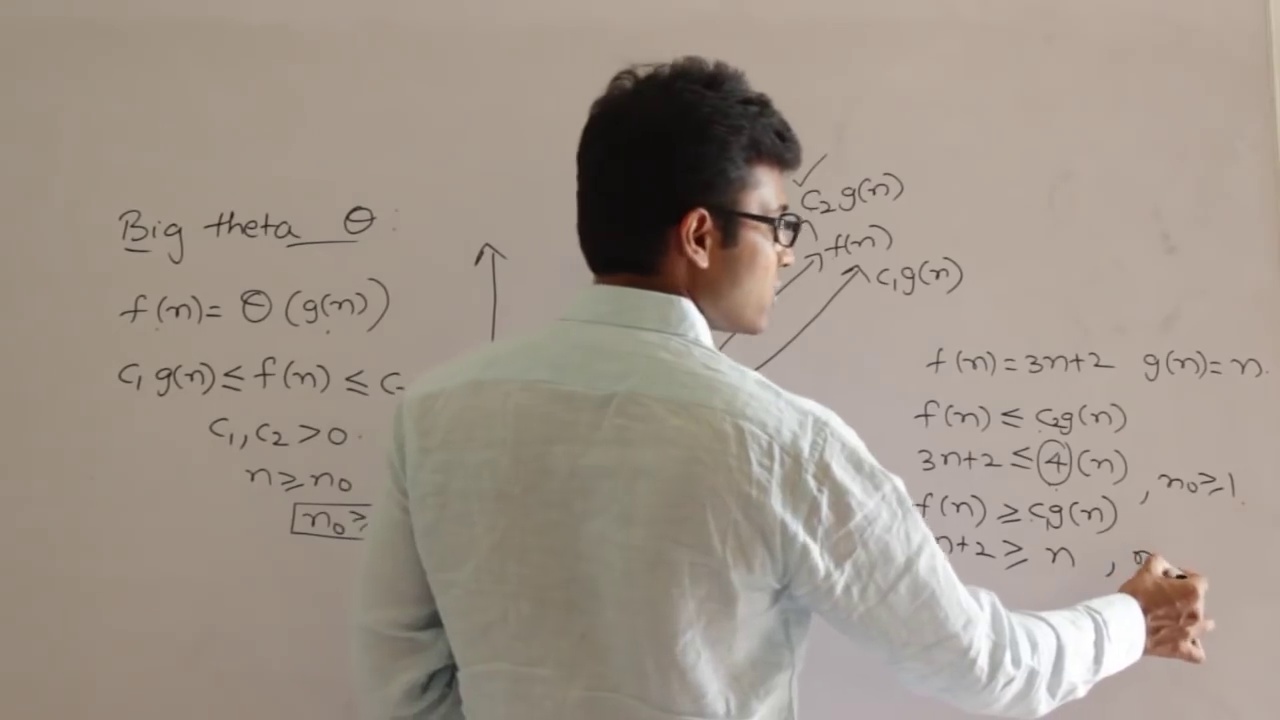 Big theta θ :
f(n) = θ (g(n))
c₁ g(n) ≤ f(n) ≤ c
c₁, c₂ > 0.
n ≥ n₀
n₀ ≥
✓
c₂ g(n)
f(n)
c₁g(n)
f(n) = 3n+2 g(n) = n.
f(n) ≤ c₂g(n)
3n+2 ≤ 4(n) , n₀ ≥ 1.
f(n) ≥ c₁g(n)
n+2 ≥ n , n